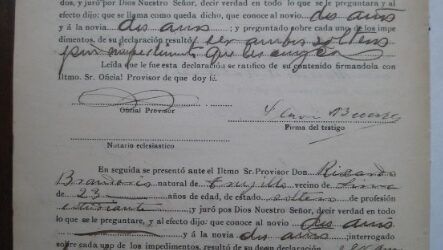 dos, y juró por Dios Nuestro Señor, decir verdad en todo lo que se le preguntara y al
efecto dijo: que se llama como queda dicho, que conoce al novio dos años
y á la novia dos años ; y preguntado sobre cada uno de los impe
dimentos de su declaración resultó ser ambos solteros
sin impedimento que les
Leída que le fué esta declaración se ratificó de su contenido firmandola con
Iltmo. Sr. Oficial Provisor de que doy fé.
Oficial Provisor
Firma del testigo
Notario eclesiastico
En seguida se presentó ante el Iltmo Sr. Provisor Don Ricardo
natural de Trujillo vecino de Lima
de 23 años de edad, de estado soltero de profesión
estudiante ; y juró por Dios Nuestro Señor, decir verdad en todo
lo que se le preguntare, y al efecto dijo: que conoce al novio dos años
y á la novia dos años interrogado
sobre cada uno de los impedimentos, resultó de su declaración